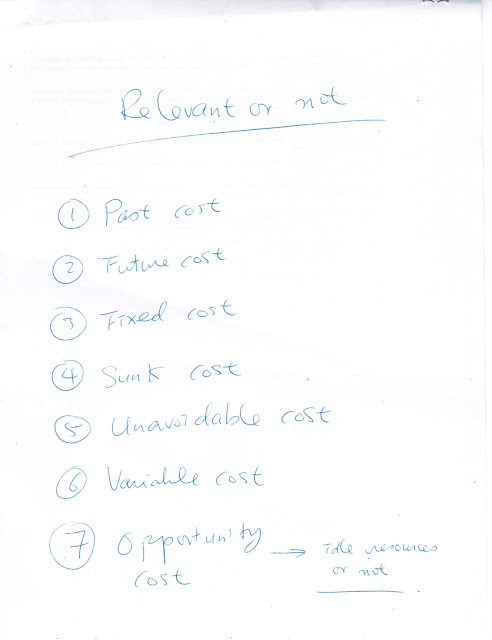 Relevant or not
① Past cost
② Future cost
③ Fixed cost
④ Sunk cost
⑤ Unavoidable cost
⑥ Variable cost
⑦ Opportunity → idle resources
cost or not